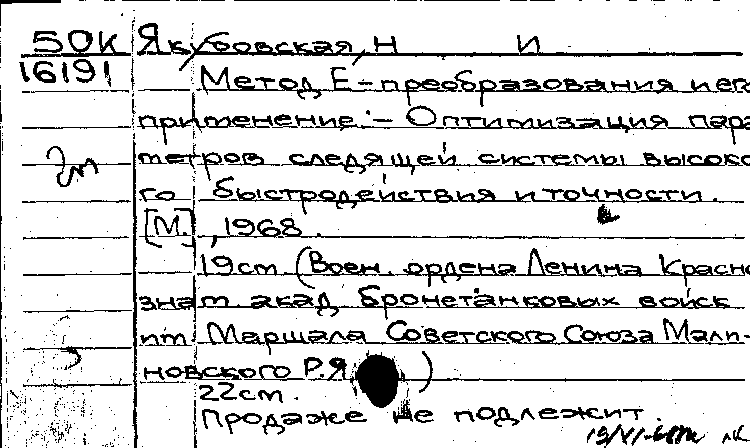 50К Якубовская, Н И
16191 Метод Е-преобразования и ег
применение.- Оптимизация пара
тетров следящей системы высоко
го быстродействия и точности.
[М.], 1968.
19ст (Воен. ордена Ленина Красно
знат. акад. бронетанковых войск
ит. Маршала Советского Союза Мали-
новского Р.Я. )
22ст.
Продаже не подлежит.